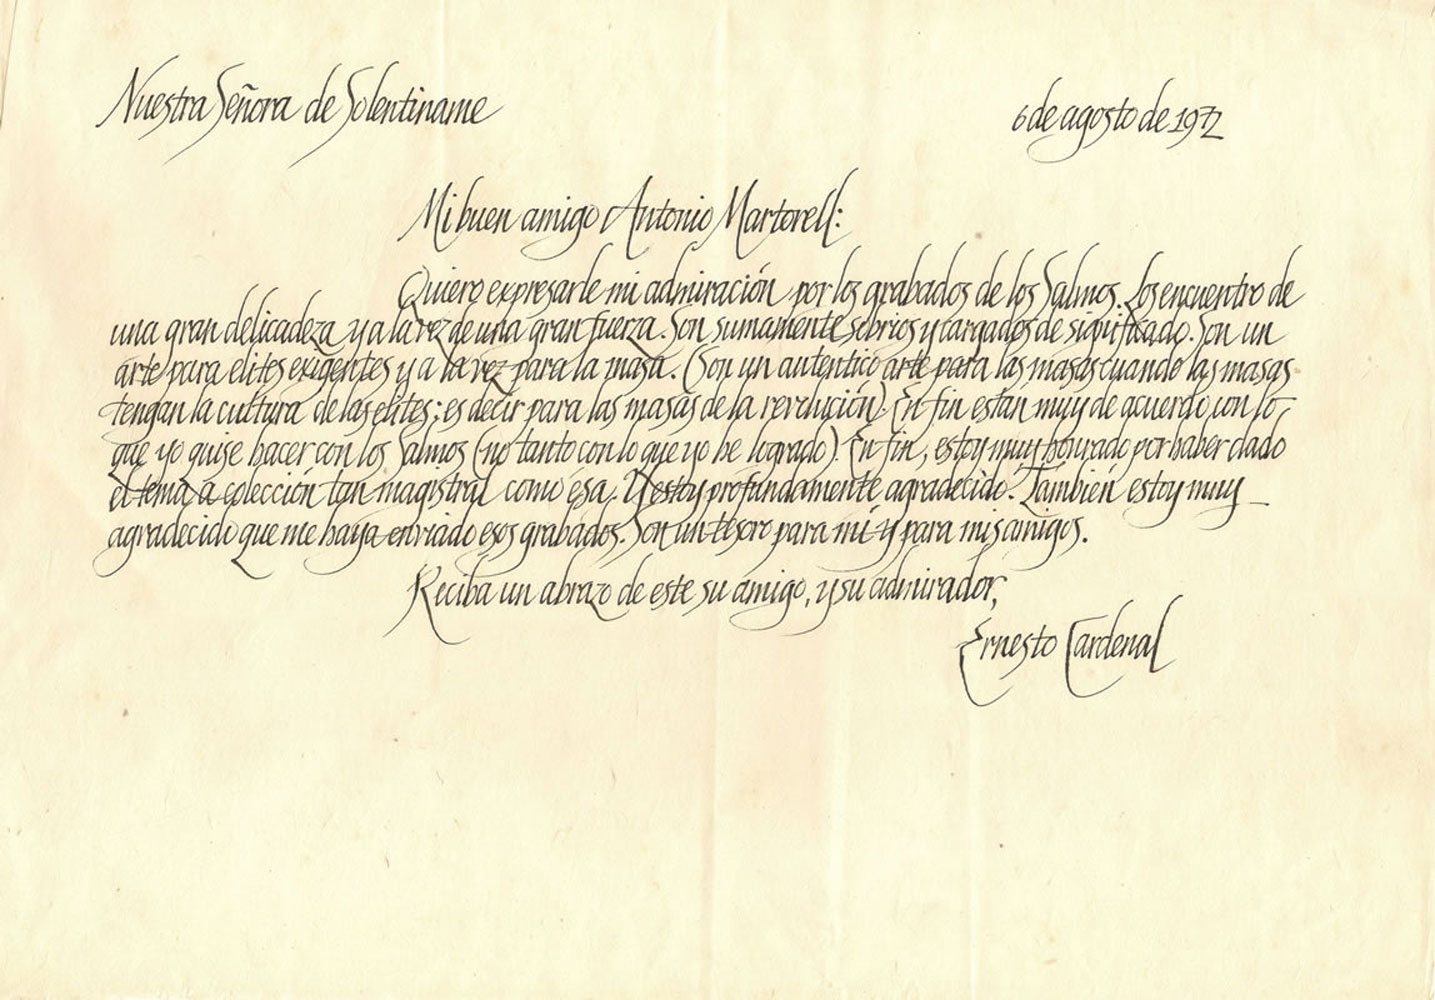 Nuestra Señora de Solentiname
6 de agosto de 1972
Mi buen amigo Antonio Martorell:
Quiero expresarle mi admiración por los grabados de los Salmos. Los encuentro de
una gran delicadeza y a la vez de una gran fuerza. Son sumamente sobrios y cargados de significado. Son un
arte para elites exigentes y a la vez para la masa. (Son un autentico arte para las masas cuando las masas
tengan la cultura de las elites; es decir para las masas de la revolución). En fin estan muy de acuerdo con lo
que yo quise hacer con los Salmos (no tanto con lo que yo he logrado). En fin, estoy muy honrado por haber dado
el tema a colección tan magistral como esa. Y estoy profundamente agradecido. También estoy muy
agradecido que me haya enviado esos grabados. Son un tesoro para mí y para mis amigos.
Reciba un abrazo de este su amigo, y su admirador,
Ernesto Cardenal